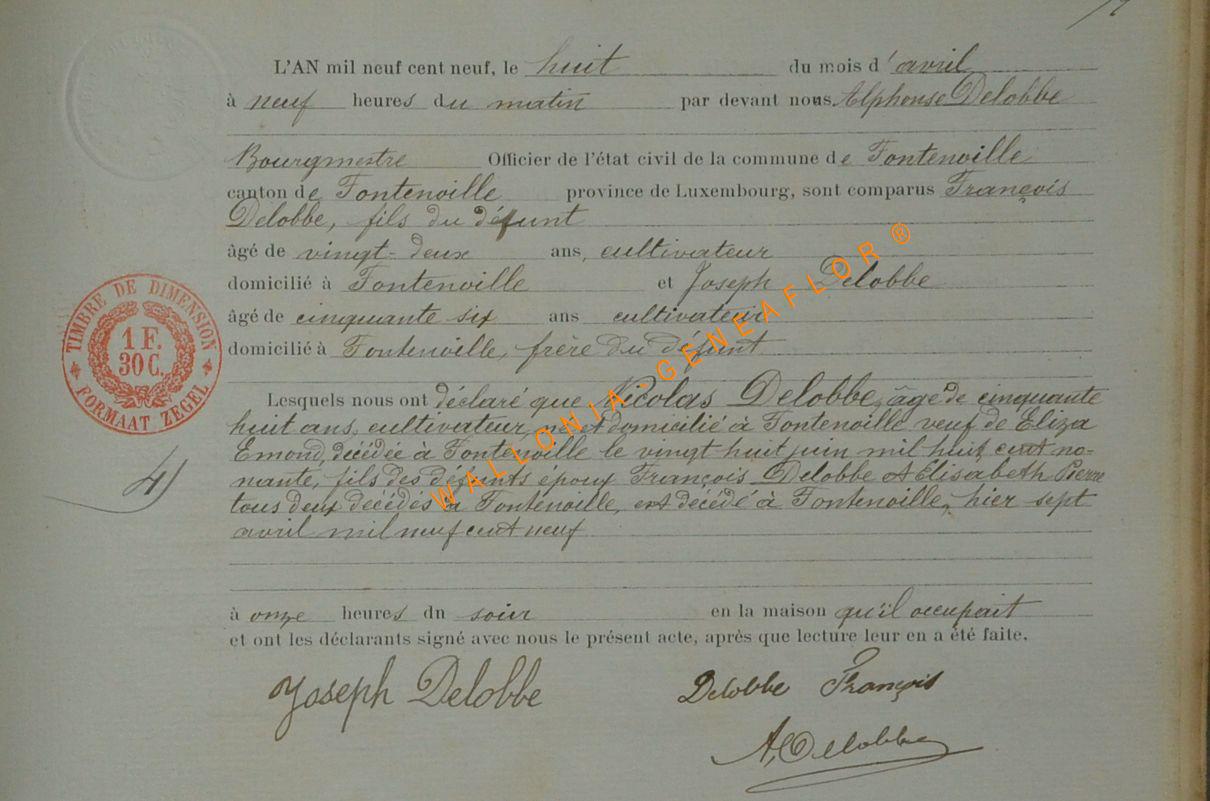 L'AN mil neuf cent neuf, le huit du mois d'avril
à neuf heures du matin par devant nous Alphonse Delobbe
Bourgmestre Officier de l'état civil de la commune de Fontenoille
canton de Fontenoille province de Luxembourg, sont comparus François
Delobbe, fils du défunt
âgé de vingt-deux ans, cultivateur
domicilié à Fontenoille et Joseph Delobbe
âgé de cinquante six ans cultivateur
domicilié à Fontenoille, frère du défunt
Lesquels nous ont déclaré que Nicolas Delobbe, âgé de cinquante
huit ans, cultivateur, né et domicilié à Fontenoille veuf de Eliza
Emond, décédée à Fontenoille le vingt huit juin mil huit cent no-
nante, fils des défunts époux François Delobbe et Elisabeth Pierre
tous deux décédés à Fontenoille, est décédé à Fontenoille, hier sept
avril mil neuf cent neuf
à onze heures du soir en la maison qu'il occupait
et ont les déclarants signé avec nous le présent acte, après que lecture leur en a été faite.
Joseph Delobbe Delobbe François
A. Delobbe
TIMBRE DE DIMENSION
1 F.
30 C.
FORMAAT ZEGEL
4)
WALLONIA-GENEAFLOR ®